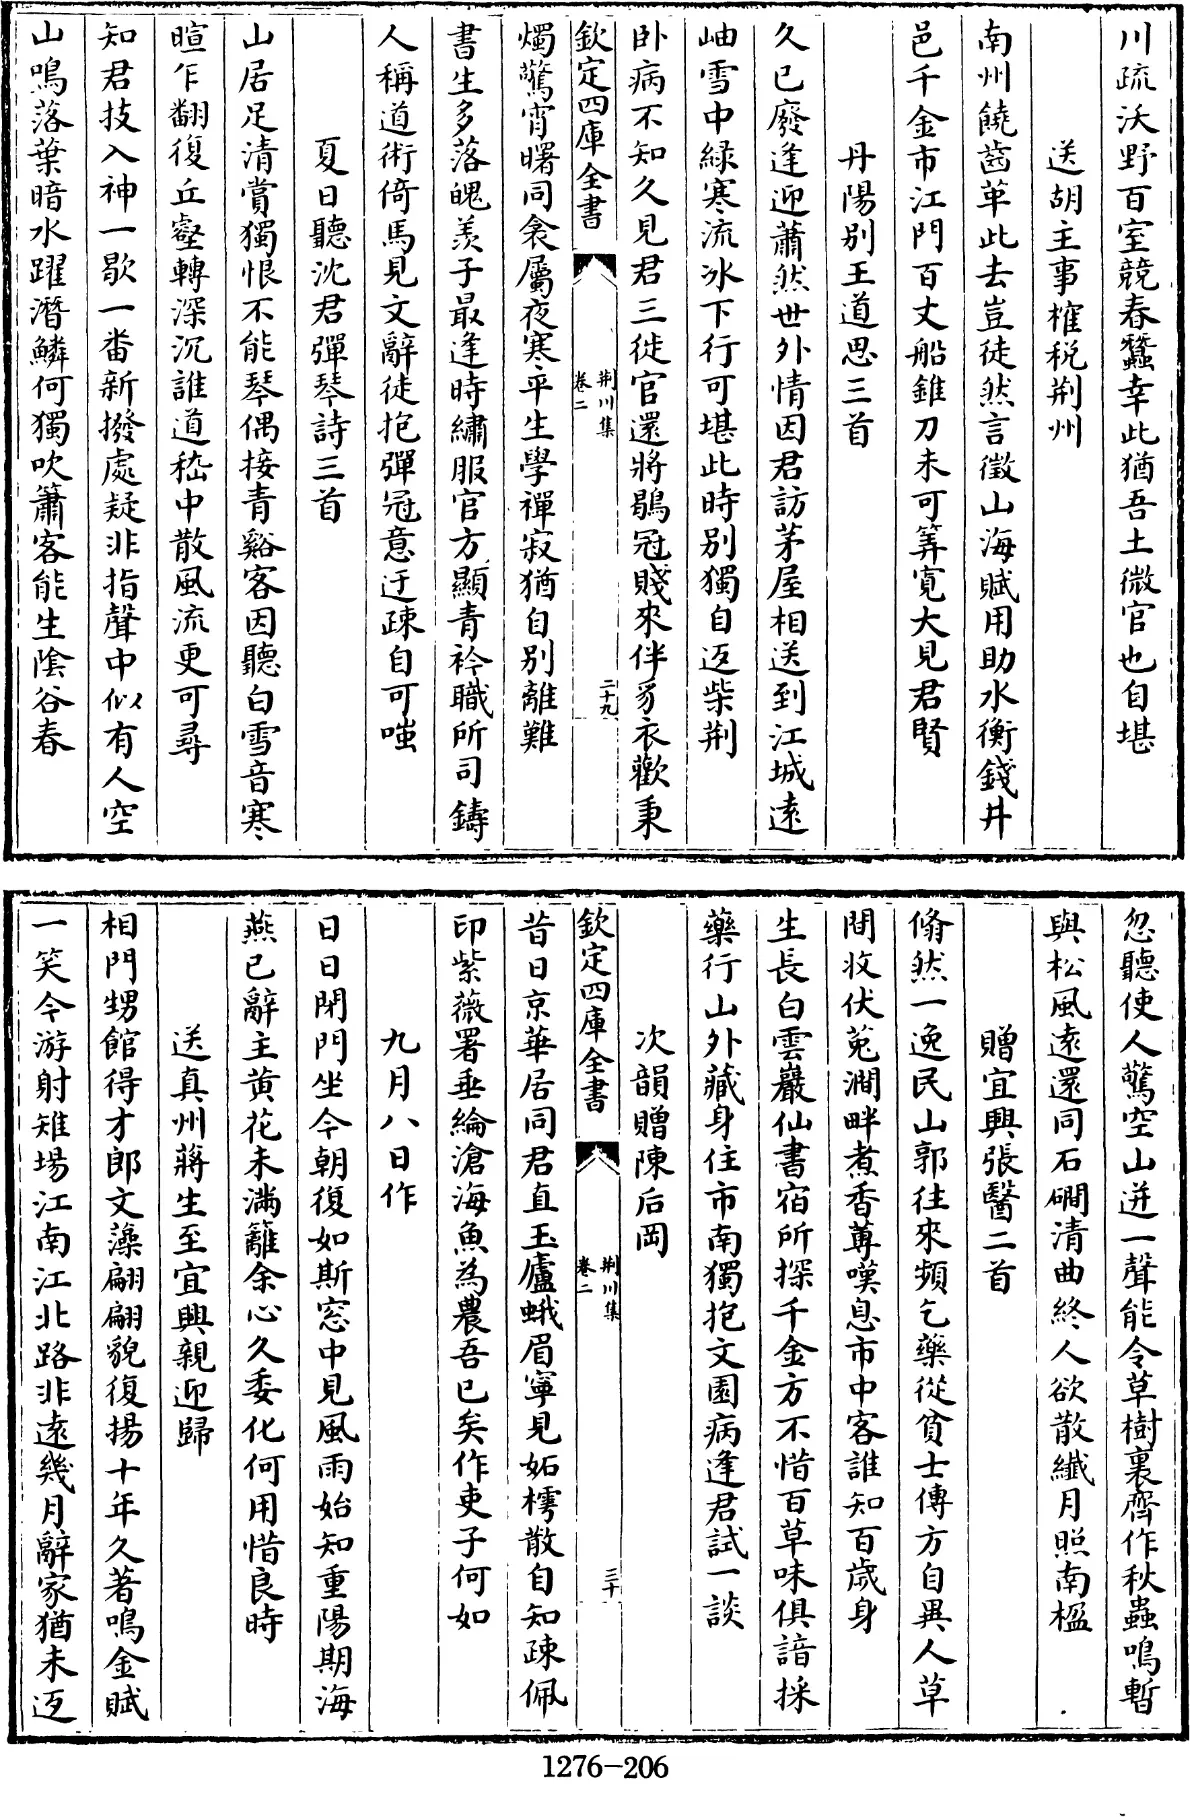 川疏沃野百室競春蠶幸此猶吾土微官也自堪
送胡主事榷税荆州
南州饒齒革此去豈徒然言徵山海賦用助水衡錢井
邑千金市江門百丈船錐刀未可筭寛大見君賢
丹陽别王道思三首
久已廢逢迎蕭然世外情因君訪茅屋相送到江城逺
岫雪中緑寒流冰下行可堪此時别獨自返柴荆
卧病不知久見君三徙官還將鶡冠賤來伴豸衣歡秉
欽定四庫全書
荆川集
卷二
二十九
燭驚宵曙同衾屬夜寒平生學禪寂猶自别離難
書生多落魄羨子最逢時繡服官方顯青衿職所司鑄
人稱道術倚馬見文辭徒抱彈冠意迂疎自可嗤
夏日聽沈君彈琴詩三首
山居足清賞獨恨不能琴偶接青谿客因聽白雪音寒
暄乍翻復丘壑轉深沉誰道嵇中散風流更可尋
知君技入神一歇一番新撥處疑非指聲中似有人空
山鳴落葉暗水躍潛鱗何獨吹簫客能生陰谷春
忽聽使人驚空山迸一聲能令草樹裏齊作秋蟲鳴暫
與松風逺還同石磵清曲終人欲散纖月照南楹
贈宜興張醫二首
翛然一逸民山郭往來頻乞藥從貧士傳方自異人草
間收伏菟澗畔煮香蓴嘆息市中客誰知百歳身
生長白雲巖仙書宿所探千金方不惜百草味俱諳採
藥行山外藏身住市南獨抱文園病逢君試一談
次韻贈陳后岡
昔日京華居同君直玉廬蛾眉寧見妬樗散自知疎佩
欽定四庫全書
荆川集
卷二
三十
印紫薇署垂綸滄海魚為農吾已矣作吏子何如
九月八日作
日日閉門坐今朝復如斯窓中見風雨始知重陽期海
燕已辭主黄花未滿籬余心久委化何用惜良時
送真州蔣生至宜興親迎歸
相門甥館得才郎文藻翩翩貌復揚十年久著鳴金賦
一笑今游射雉場江南江北路非逺幾月辭家猶未返
1276-206